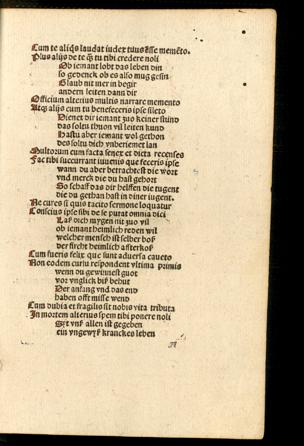 Cum te aliqs laudat iudex tuus esse memēto.
Plus alijs de te q̄ tu tibi credere noli
Ob iemant lobt das leben din
so gedenck ob es also mug gesin
Glaub nit mer in begir
andern leiten dann dir
Officium alterius multis narrare memento
Atq̄ alijs cum tu benefeceris ipse sileto
Dienet dir iemant zuo keiner stund
das soltu thuon vil leiten kund
Hastu aber iemant wol gethon
des soltu dich vnberiemet lan
Multorum cum facta senex et dicta recenses
Fac tibi succurrant iuuenis que feceris ipse
wann du aber betrachtest die wort
vnd merck die du hast gehort
So schaff das dir helffen die tugent
die du gethan hast in diner iugent.
Ne cures si quis tacito sermone loquatur
Conscius ipse sibi de se putat omnia dici
Las dich mygen nit zuo vil
ob iemant heimlich reden wil
welcher mensch ist selber boß
der fircht heimlich affterkoß
Cum fueris felix que sunt aduersa caueto
Non eodem cursu respondent vltima primis
wenn du gewinnest guot
vor vnglick biß behut
Der anfang vnd das end
haben offt misse wend
Cum dubia et fragilis sit nobis vita tributa
In mortem alterius spem tibi ponere noli
Syt vnß allen ist gegeben
ein vngewyß kranckes leben